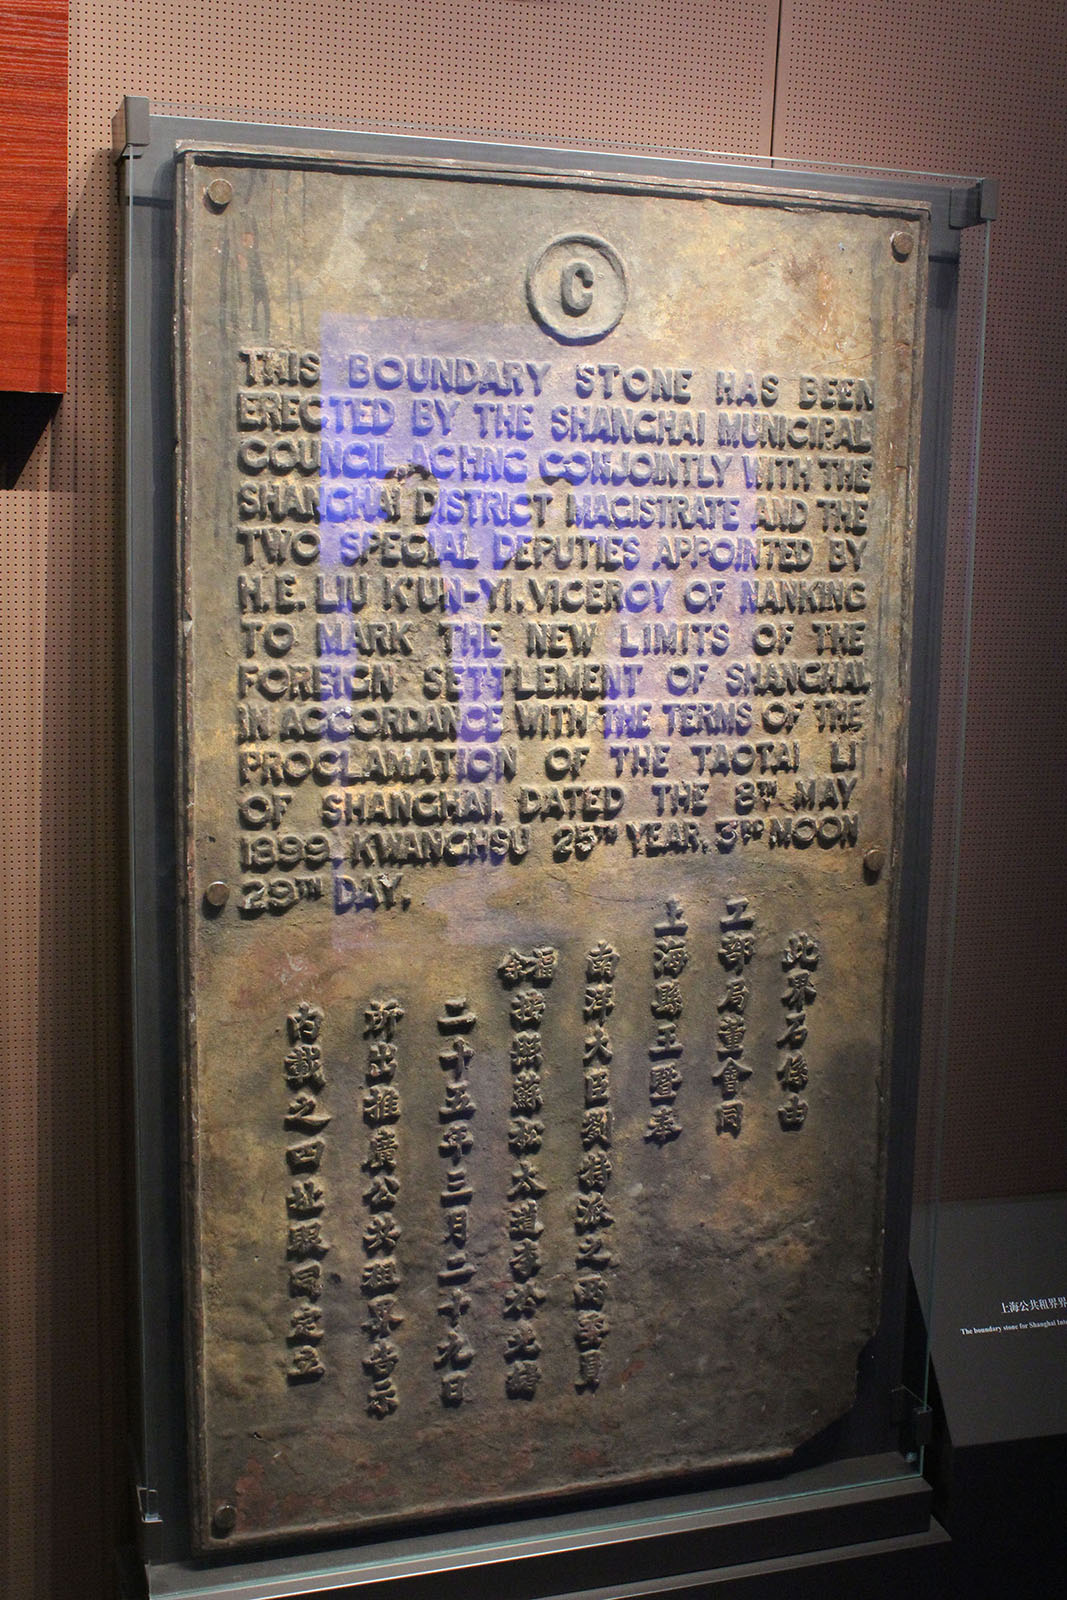 C
THIS BOUNDARY STONE HAS BEEN
ERECTED BY THE SHANGHAI MUNICIPAL
COUNCIL ACTING CONJOINTLY WITH THE
SHANGHAI DISTRICT MAGISTRATE AND THE
TWO SPECIAL DEPUTIES APPOINTED BY
H.E. LIU K'UN-YI, VICEROY OF NANKING
TO MARK THE NEW LIMITS OF THE
FOREIGN SETTLEMENT OF SHANGHAI,
IN ACCORDANCE WITH THE TERMS OF THE
PROCLAMATION OF THE TAOTAI LI
OF SHANGHAI, DATED THE 8TH MAY
1899, KWANGHSU 25TH YEAR, 3RD MOON
29TH DAY.
此界石係由
工部局董會同
上海縣王暨奉
南洋大臣劉特派之兩委員
福余按照蘇松太道李於光緒
二十五年三月二十九日
所出推廣公共租界告示
內載之四址眼同定立
上海公共租界界
The boundary stone for Shanghai